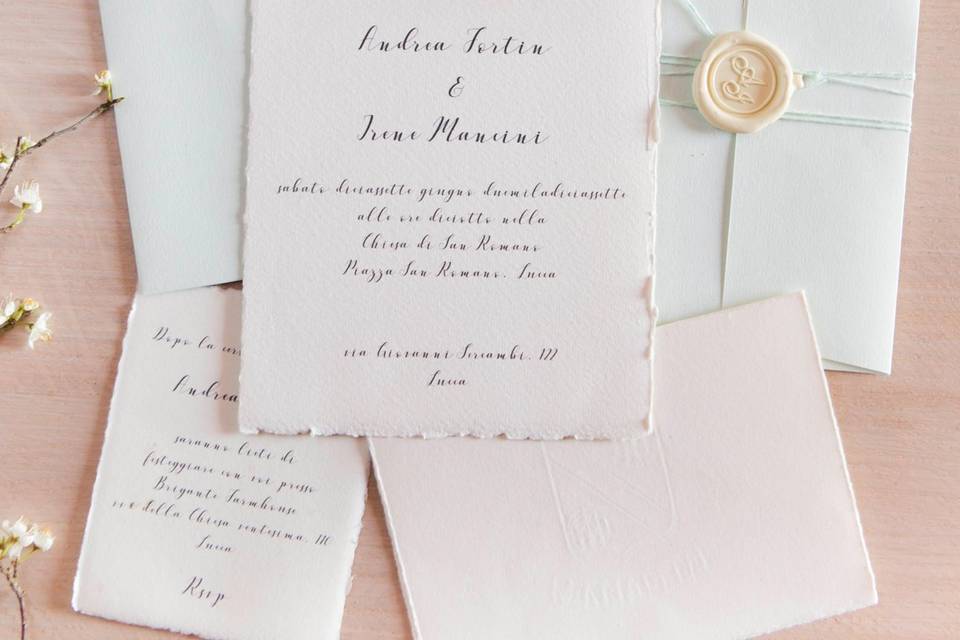 Andrea Fortin
&
Irene Mancini
sabato diciassette giugno duemiladiciassette
alle ore diciotto nella
Chiesa di San Romano
Piazza San Romano, Lucca
via Giovanni Sercambi, 122
Lucca
Dopo la
Andrea
saranno lieti di
festeggiare con voi presso
Brigante Farmhouse
via della Chiesa ventesima,
Lucca
Rsvp